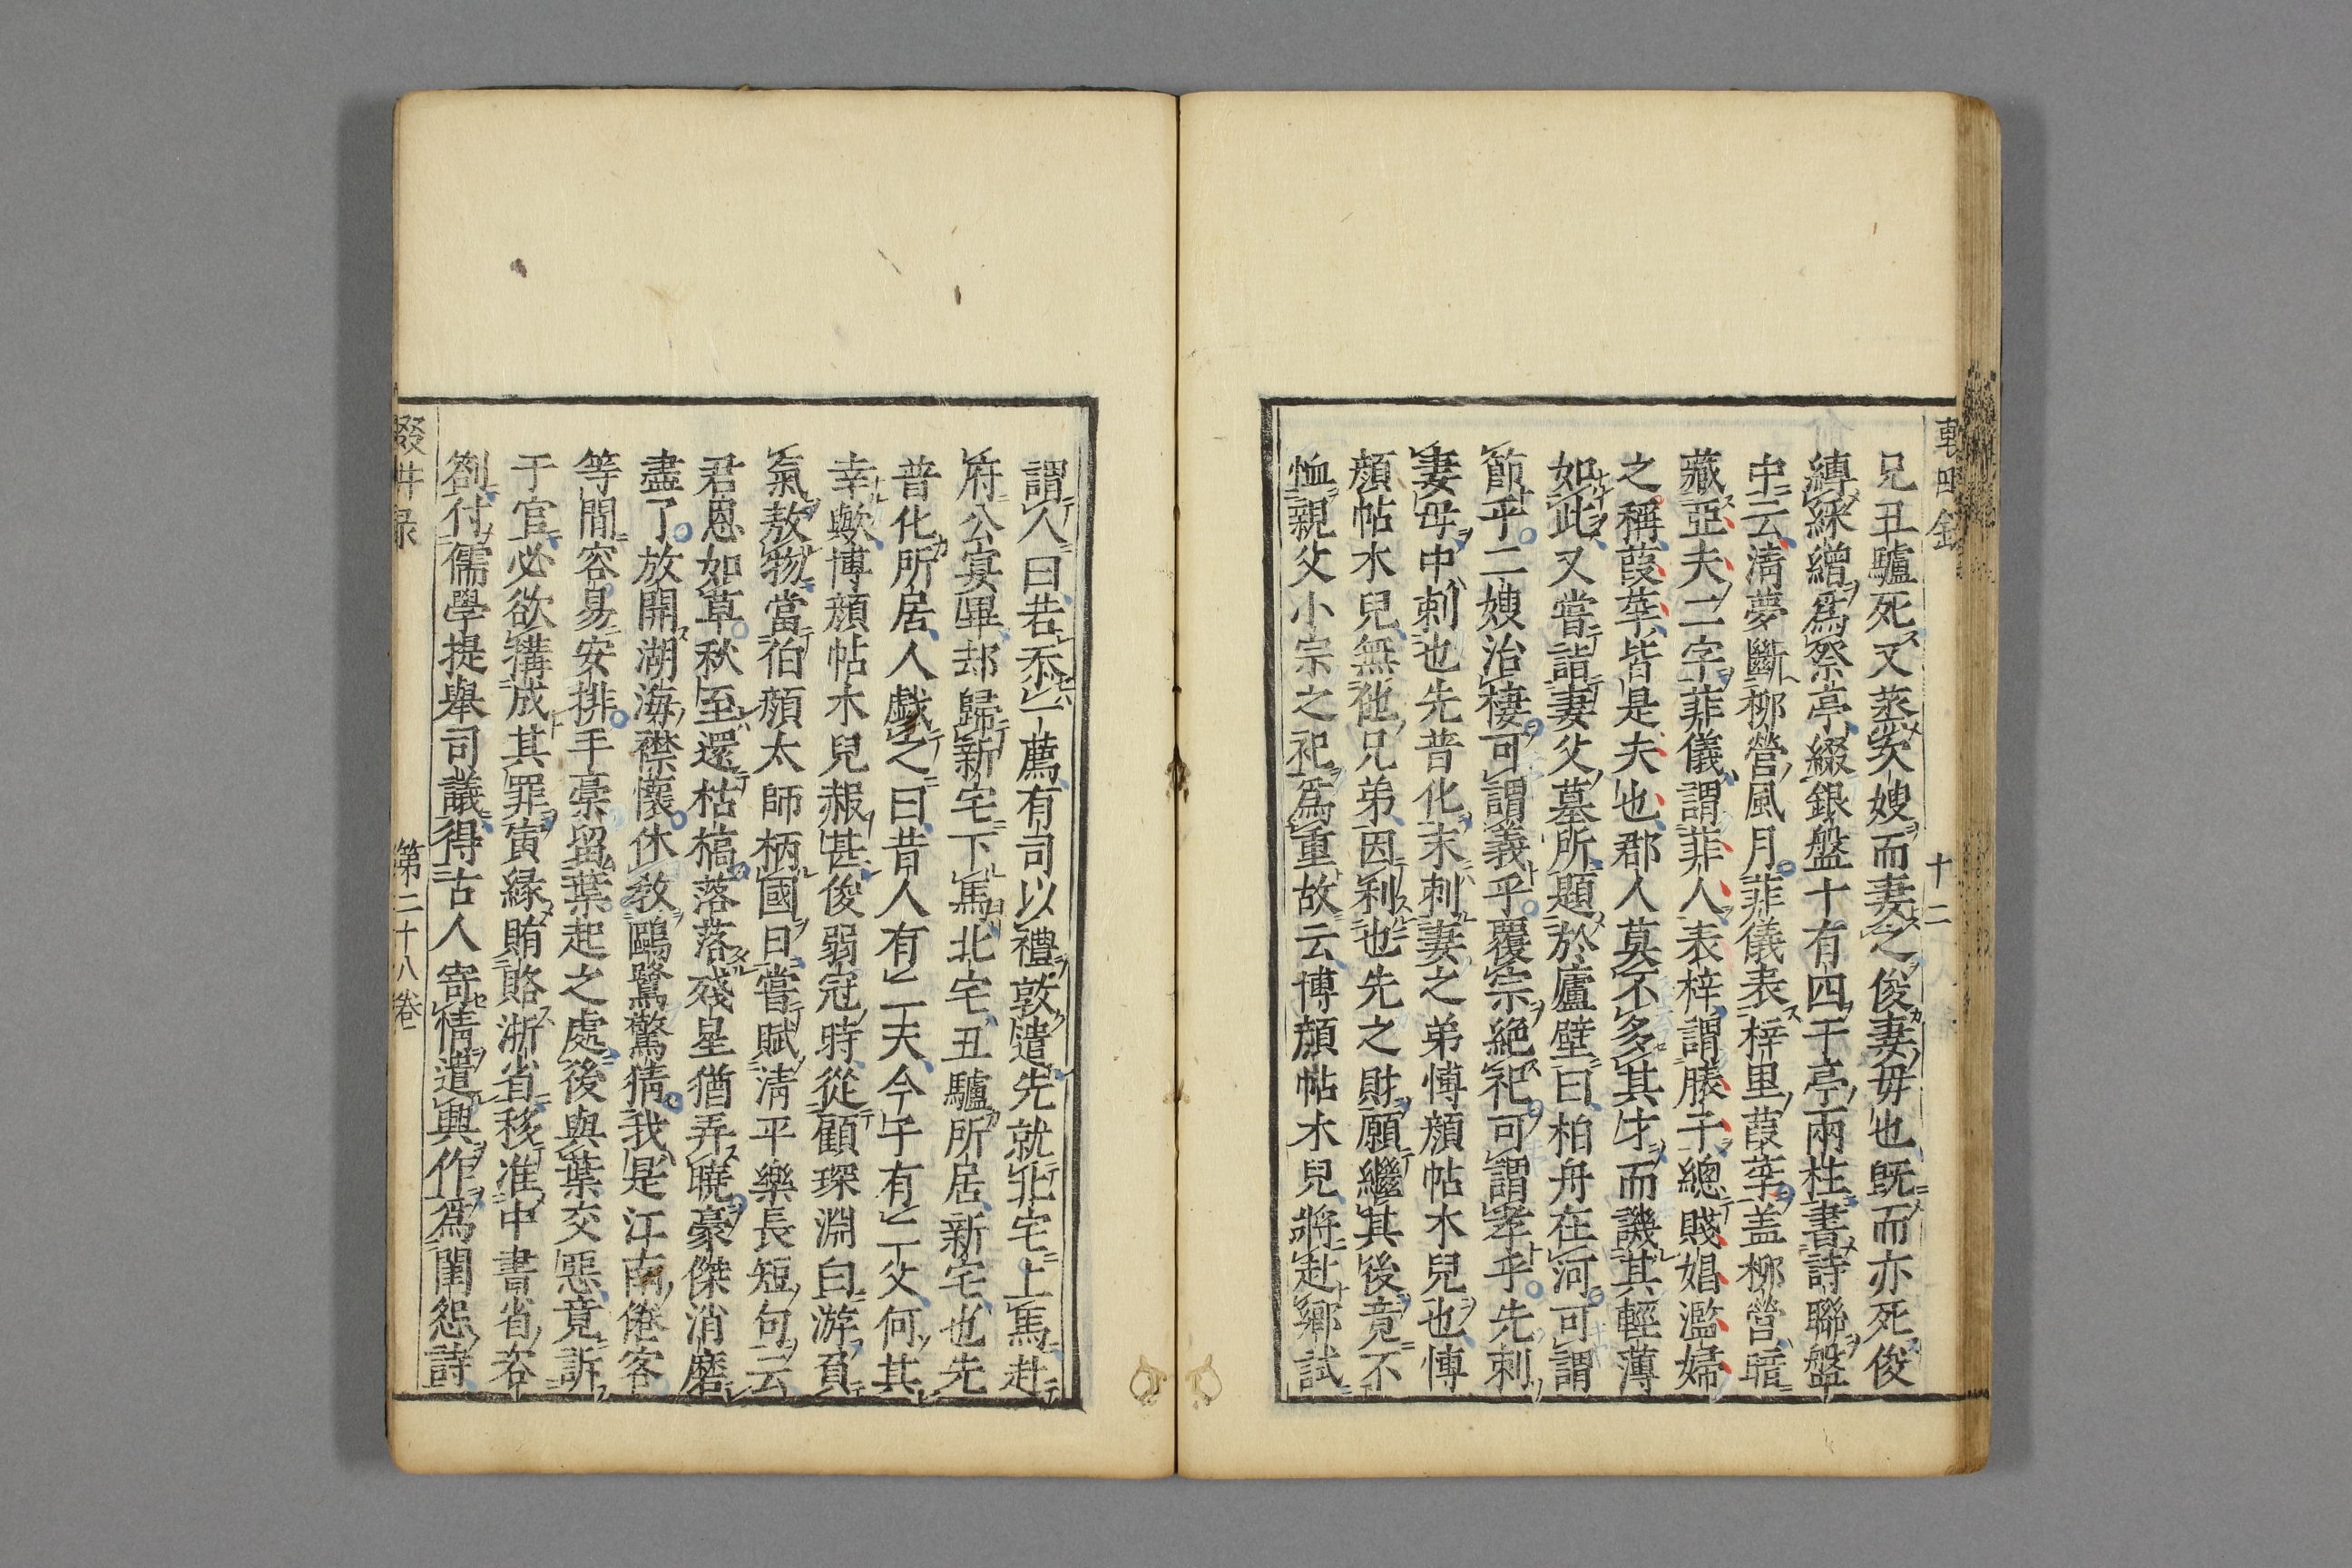 兄丑驢死又蒸次嫂而妻之俊妻母也既而亦死俊
縛綵繒爲祭亭綴銀盤十有四于亭兩柱書詩聯盤
中云淸夢斷柳營風月菲儀表梓里葭莩盖柳營暗
藏亞夫二字菲儀謂菲人表梓謂膝子總賤娼濫婦
之稱葭莩皆是夫也郡人莫不多其才而譏其輕薄
如此又嘗詣妻父墓所題於廬壁曰柏舟在河可謂
節乎二嫂治棲可謂義乎覆宗絶祀可謂孝乎先刺
妻母中刺也先普化末刺妻之弟愽顔帖木兒也愽
顔帖木兒無他兄弟因利也先之財願繼其後竟不
恤親父小宗之祀爲重故云博顔帖木兒將赴鄕試
謂人曰若忝一薦有司以禮敦遣先就北宅上馬赴
府公宴畢却歸新宅下馬北宅丑驢所居新宅也先
普化所居人戲之曰昔人有二天今子有二父何其
幸歟博顔帖木兒赧甚俊弱冠時從顧琛淵白游負
氣敖物當伯顔太師柄國日嘗賦淸平樂長短句云
君恩如草秋至還枯槁落落殘星猶弄曉豪傑消磨
盡了放開湖海襟懷休敎鷗鷺驚猜我是江南倦客
等閒容易安排手藁留葉起之處後與葉交惡竟訴
于官必欲搆成其罪寅縁賄賂浙省移准中書省咨
劄付儒學提擧司議得古人寄情遣興作爲閨怨詩
十二
第二十八卷